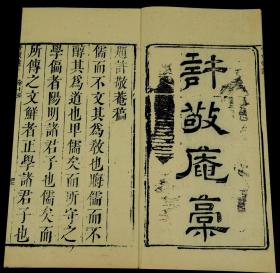 許敬庵稾
題許敬菴稿
儒而不文其為敎也晦儒而不
醇其為道也卑儒矣而所守之
學僞者陽明諸君子也儒矣而
所傳之文鮮者正學諸君子也